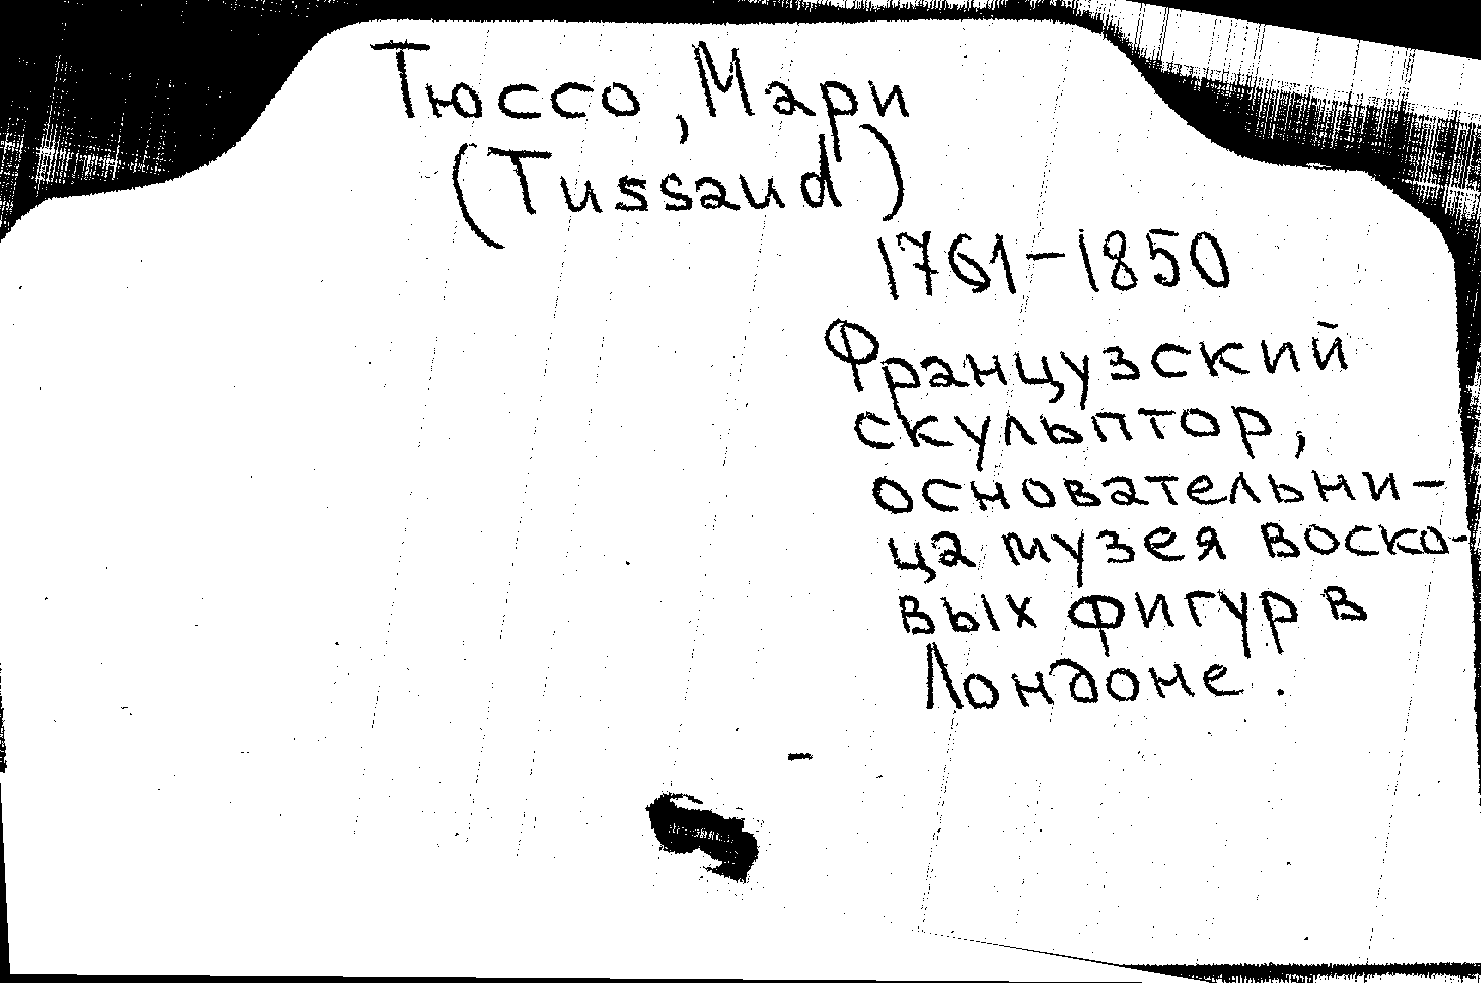 Тюссо, Мари
(Tussaud)
1761-1850
Французский
скульптор,
основательни-
ца музея воско-
вых фигур в
Лондоне.